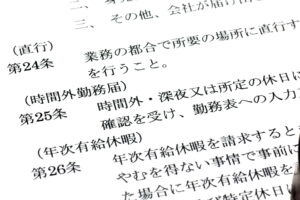 三、その他、会社が届け出
(直行)
第24条 業務の都合で所要の場所に直行す
を行うこと。
(時間外勤務届)
第25条 時間外・深夜又は所定の休日に
確認を受け、勤務表への入力
(年次有給休暇)
第26条 年次有給休暇を請求すると
やむを得ない事情で事前に
た場合に年次有給休暇を
特定休日